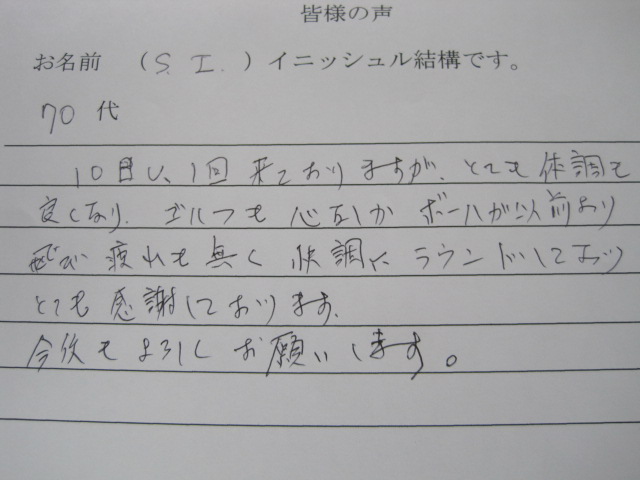 皆様の声
お名前 （S. I.）イニッシュル結構です。
70 代
10日に、1回来ておりますが、とても体調も
良くなり、ゴルフも心なしかボールが以前より
飛び疲れも無く快調にラウンドしており
とても感謝しております。
今後もよろしくお願いします。